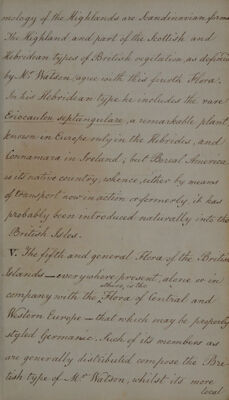 mology of the Highlands are Scandinavian forms
The Highland and part of the Scottish and
Hebridean types of British vegetation, as defined
by Mr Watson, agree with this fourth Flora.
In his Hebridean type he includes the rare
Eriocaulon septangulare, a remarkable plant
known in Europe only in the Hebrides, and
Connamara in Ireland; but Boreal America
is its native country, whence, either by means
of transport now in action or formerly, it has
probably been introduced naturally into the
British Isles.
V. The fifth and general Flora of the British
Islands – everywhere present, alone or in
others, is the
company with the Flora of Central and
Western Europe – that which may be properly
styled Germanic. Such of its members as
are generally distributed compose the Bri-
tish type of Mr Watson, whilst its more
local